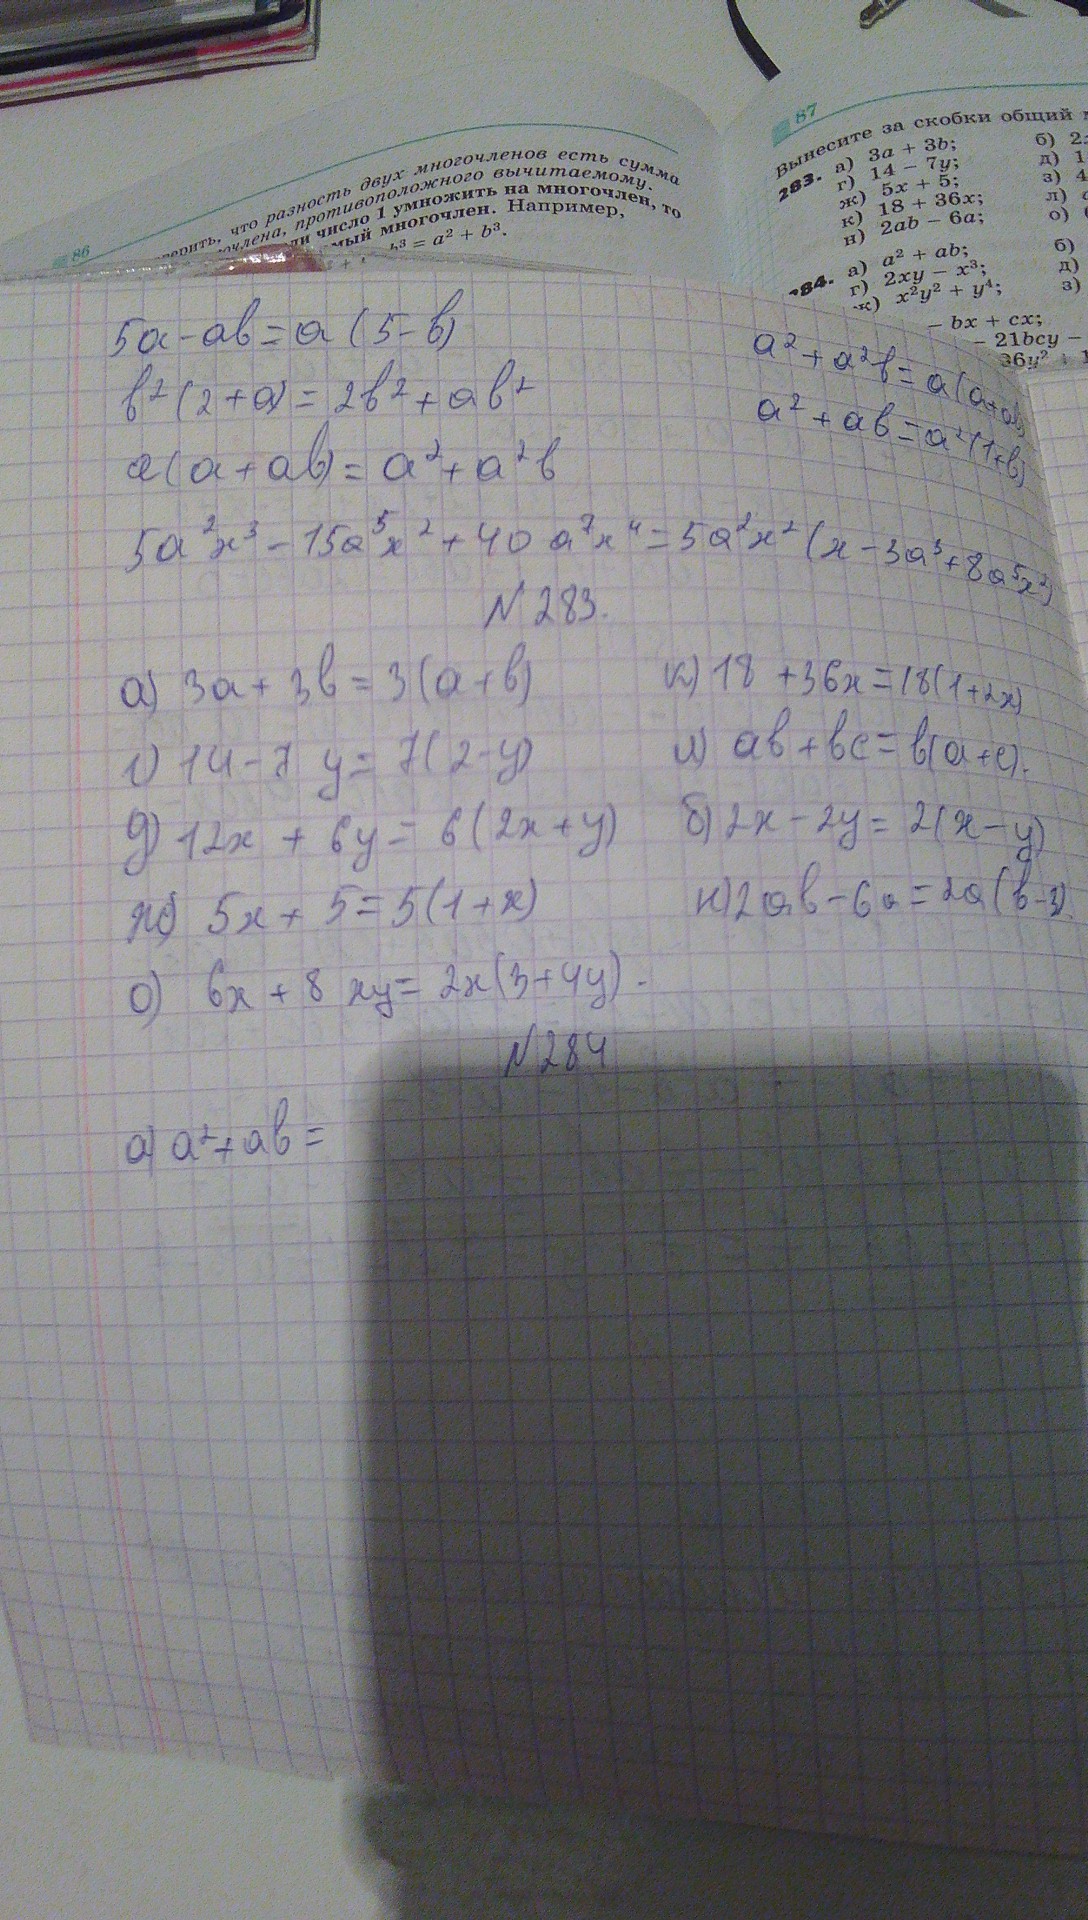 86
что разность двух многочленов есть сумма
противоположного вычитаемому.
число 1 умножить на многочлен, то
многочлен. Например,
b³ = a² + b³.
87
Вынесите за скобки общий
283. а) 3a + 3b;
г) 14 − 7y;
ж) 5x + 5;
к) 18 + 36x;
н) 2ab − 6a;
б)
д)
з)
л)
о)
а) a² + ab;
г) 2xy − x³;
x²y² + y⁴;
б)
д)
з)
− bx + cx;
− 21bcy −
36y²
5a-ab=a(5-b)
b²(2+a)=2b²+ab²
a(a+ab)=a²+a²b
a²+a²b=a(a+ab)
a²+ab=a²(1+b)
5a²x³-15a⁵x²+40a⁷x⁴=5a²x²(x-3a³+8a⁵x²)
N 283.
а) 3a+3b=3(a+b)
г) 14-7y=7(2-y)
д) 12x+6y=6(2x+y)
ж) 5x+5=5(1+x)
о) 6x+8xy=2x(3+4y).
к) 18+36x=18(1+2x)
л) ab+bc=b(a+c).
б) 2x-2y=2(x-y)
н) 2ab-6a=2a(b-3).
N 284
а) a²+ab=